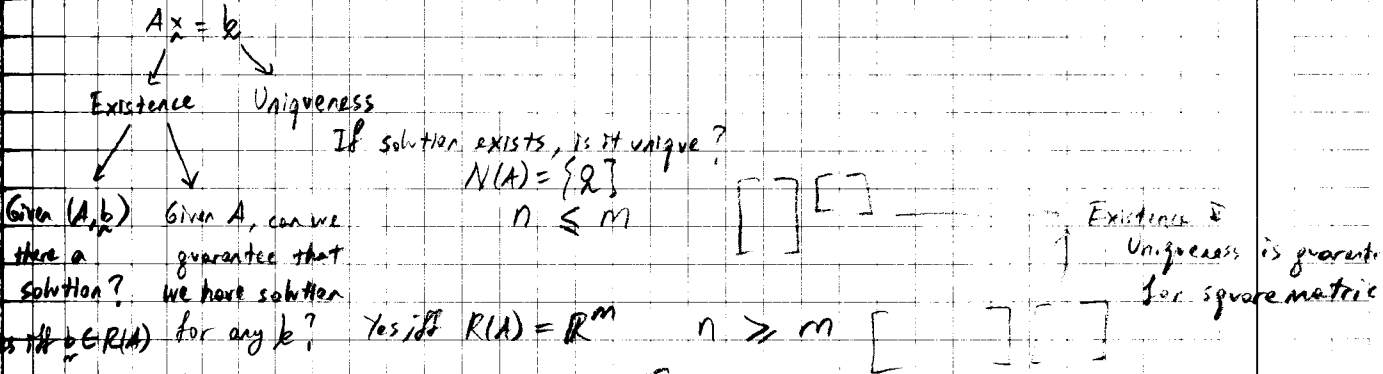 Ax = b
Existence Uniqueness
If solution exists, is it unique?
N(A) = {0}
n ≤ m
Given (A,b)
there a
solution?
iff b ∈ R(A)
Given A, can we
guarantee that
we have solution
for any b? Yes iff R(A) = ℝᵐ n ≥ m
Existence &
Uniqueness is guarant
for square matric